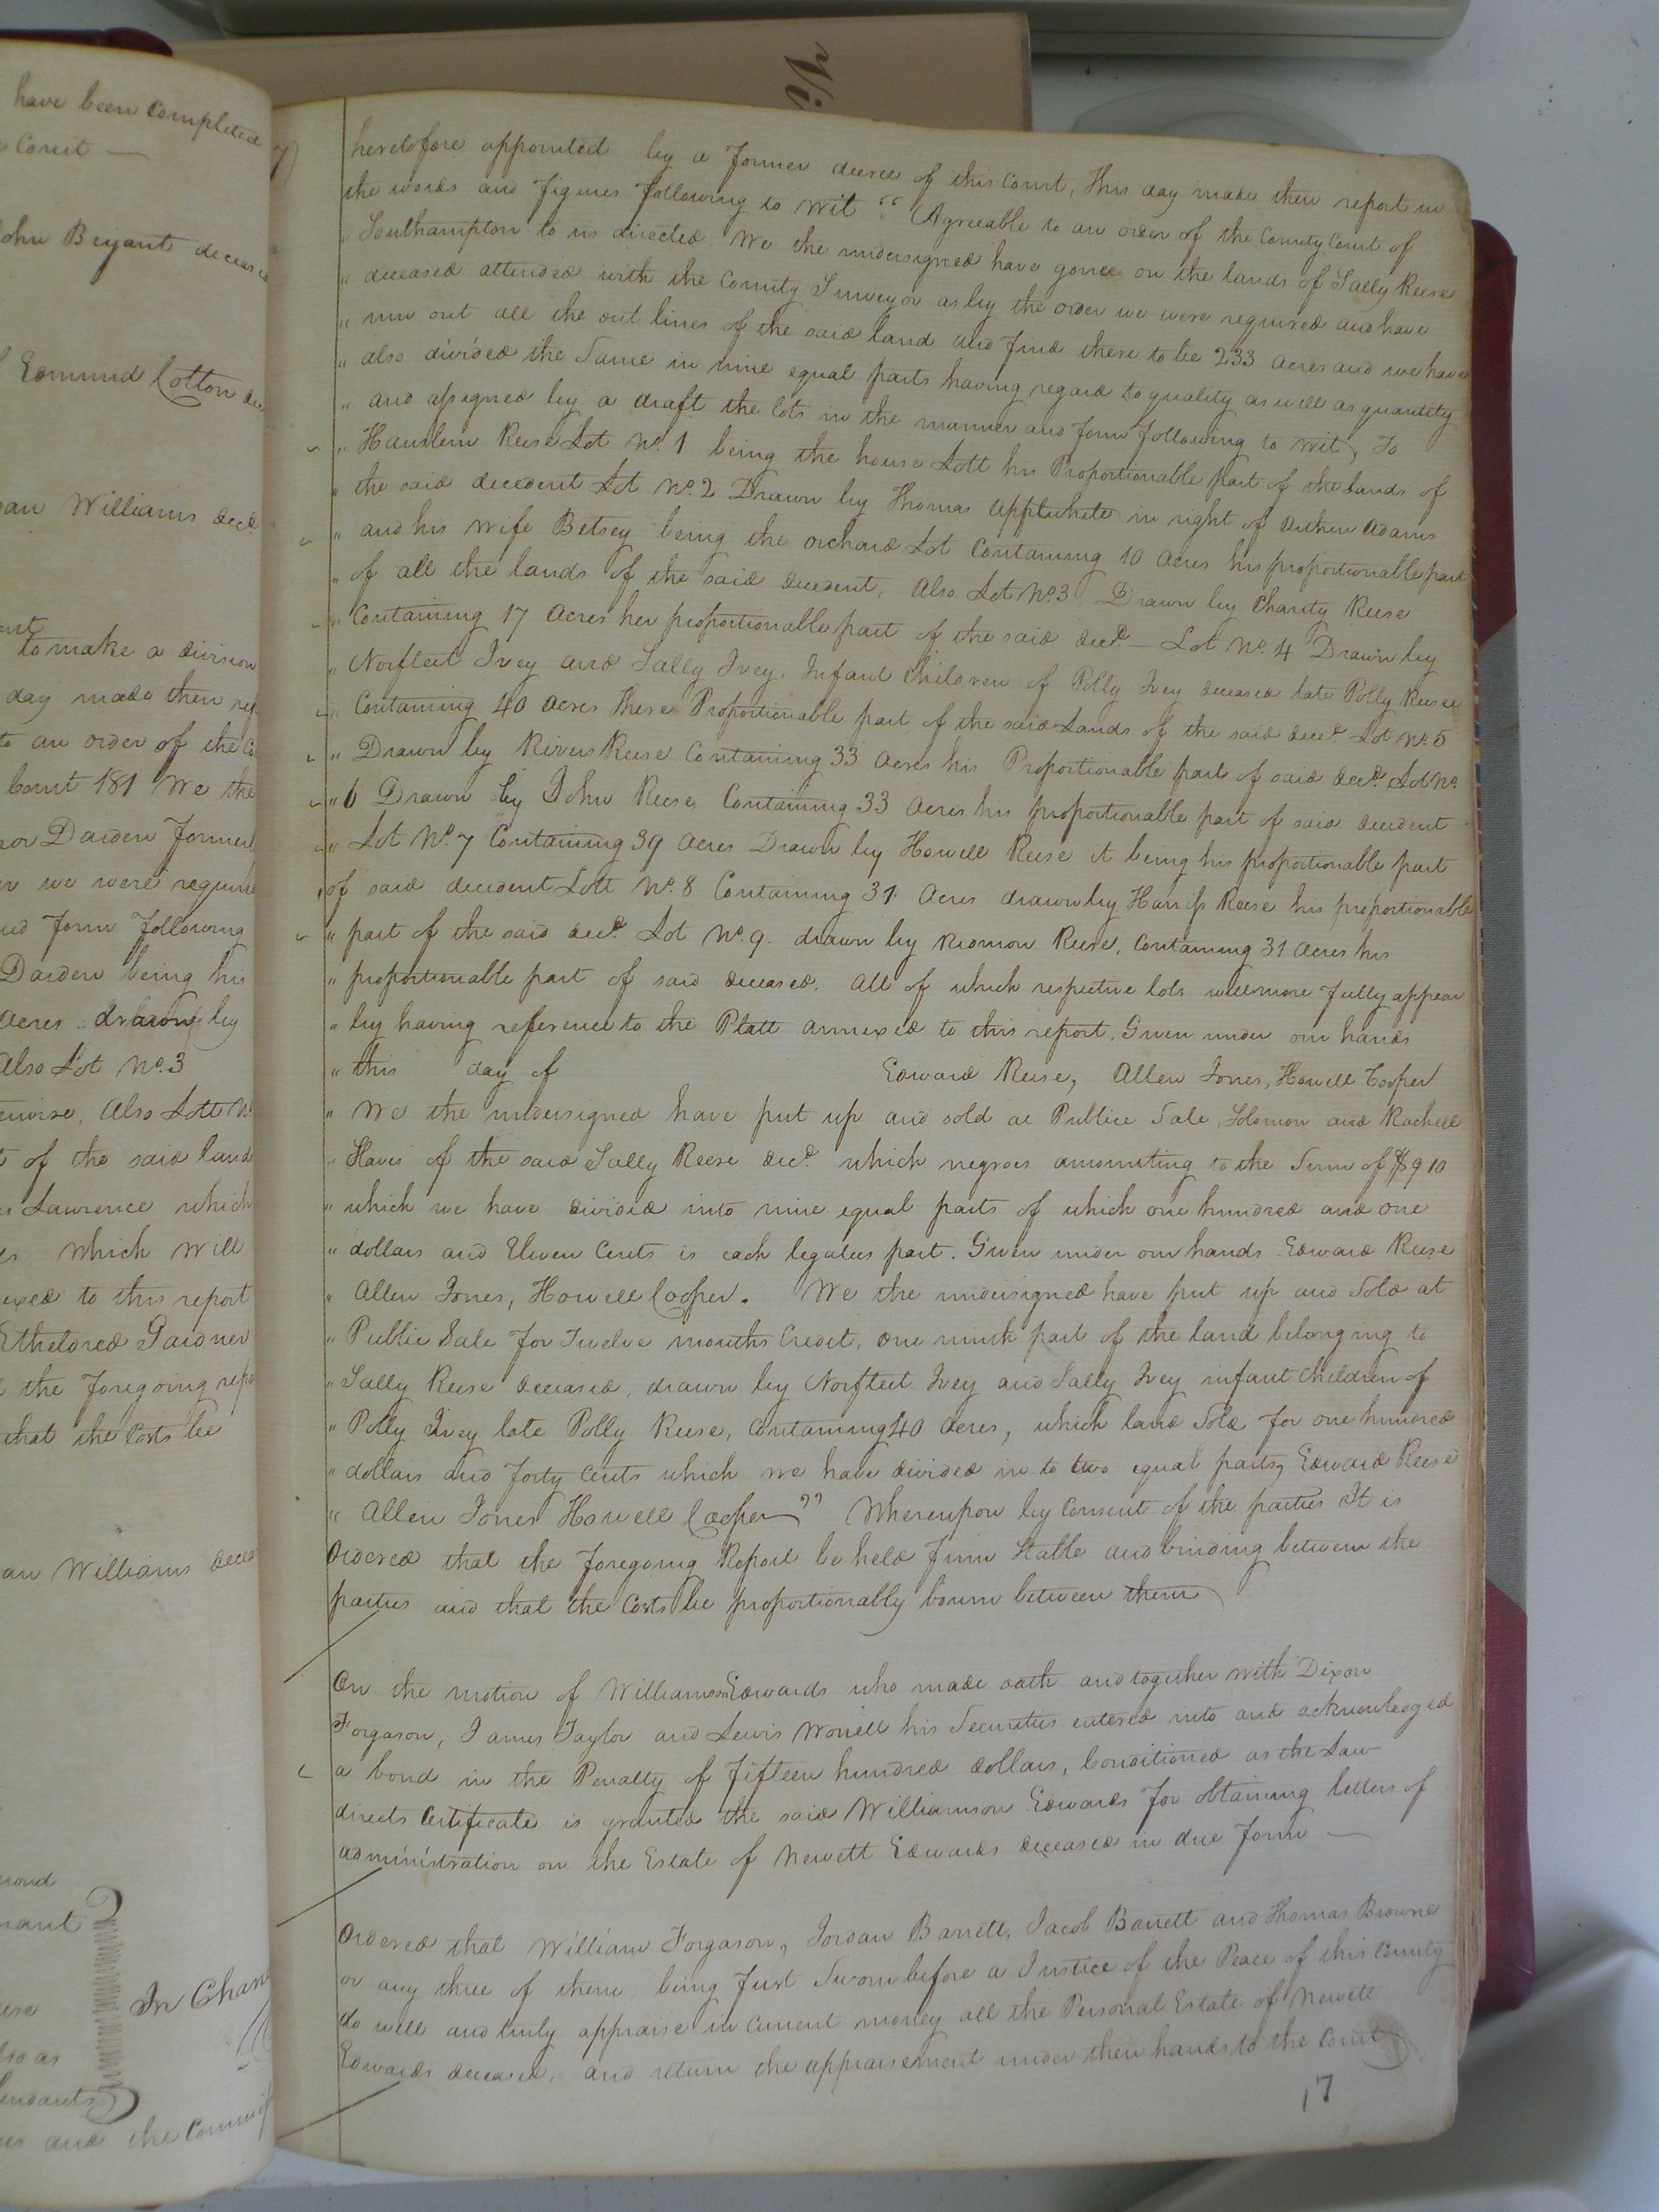 have been Completed
Court —
John Bryant deceased
Edmund Cotton dec
an Williams decd.
to make a division
day made their rep
to an order of the Co
Court 181 We the
Darden former
er we were requir
and form following
Darden being his
Acres drawn by
Also Lot No. 3
Also Lott No
of the said land
Lawrence which
which will
exed to this report
Etheldred Gardner
the foregoing repo
that the Costs be
an Williams decd
In Chan
and the Commiss
Vi
7)
heretofore appointed by a former decree of this Court, This day made their report in
the words and figures following to wit “ Agreeable to an order of the County Court of
" Southampton to us directed, We the undersigned have gone on the lands of Sally Reese
" deceased attended with the County Surveyor as by the order we were required and have
" run out all the out lines of the said land and find there to be 233 acres and we have
" also divided the Same in nine equal parts having regard to quality as well as quantity
" and assigned by a draft the lots in the manner and form following to wit, To
" Reese Lot No. 1 being the house Lott his Proportionable part of the lands of
" the said decedent Lot No. 2 Drawn by Thomas Applewhite in right of Adams
" and his wife Betsey being the orchard Lot Containing 10 Acres his proportionable part
" of all the lands of the said decedent, Also Lot No. 3 Drawn by Charity Reese
" Containing 17 Acres her proportionable part of the said decd. — Lot No. 4 Drawn by
" Norfleet Ivey and Sally Ivey, Infant Children of Polly Ivey deceased late Polly Reese
" Containing 40 Acres There Proportionable part of the said Lands of the said decd. Lot No. 5
" Drawn by Rivers Reese Containing 33 Acres his Proportionable part of said decd. Lot No.
" 6 Drawn by John Reese Containing 33 Acres his proportionable part of said decedent
" Lot No. 7 Containing 39 Acres Drawn by Howell Reese it being his proportionable part
" of said decedent Lott No. 8 Containing 31 Acres drawn by Harriss Reese his proportionable
" part of the said decd. Lot No. 9. drawn by Reese, Containing 31 Acres his
" proportionable part of said deceased. All of which respective lots will more fully appear
" by having reference to the Platt annexed to this report, Given under our hands
" this day of Edward Reese, Allen Jones, Howell Cooper
" We the undersigned have put up and sold at Publice Sale, Solomon and Rachell
" Slaves of the said Sally Reese decd. which negroes amounting to the Sum of $910
" which we have divided into nine equal parts of which one hundred and one
" dollars and Eleven Cents is each legatees part. Given under our hands Edward Reese
" Allen Jones, Howell Cooper. We the undersigned have put up and Sold at
" Public Sale for Twelve months Credit, one ninth part of the land belonging to
" Sally Reese deceased, drawn by Norfleet Ivey and Sally Ivey infant Children of
" Polly Ivey late Polly Reese, Containing 40 Acres, which land Sold for one hundred
" dollars and forty Cents which we have divided in to two equal parts, Edward Reese
" Allen Jones Howell Cooper” Whereupon by Consent of the parties It is
Ordered that the foregoing Report be held firm Stable and binding between the
parties and that the Costs be proportionably bourn between them
On the motion of Williamson Edwards who made oath and together with Dixon
Forgason, James Taylor and Lewis Worrell his Securities entered into and acknowledged
a bond in the Penalty of fifteen hundred dollars, Conditioned as the Law
directs Certificate is granted the said Williamson Edwards for obtaining letters of
administration on the Estate of Newett Edwards deceased in due form —
Ordered that William Forgason, Jordan Barrett, Jacob Barrett and Thomas Browne
or any three of them, being first Sworn before a Justice of the Peace of this County
do well and truly appraise in Current money all the Personal Estate of Newett
Edwards deceased, and return the appraisement under their hands to the Court
17